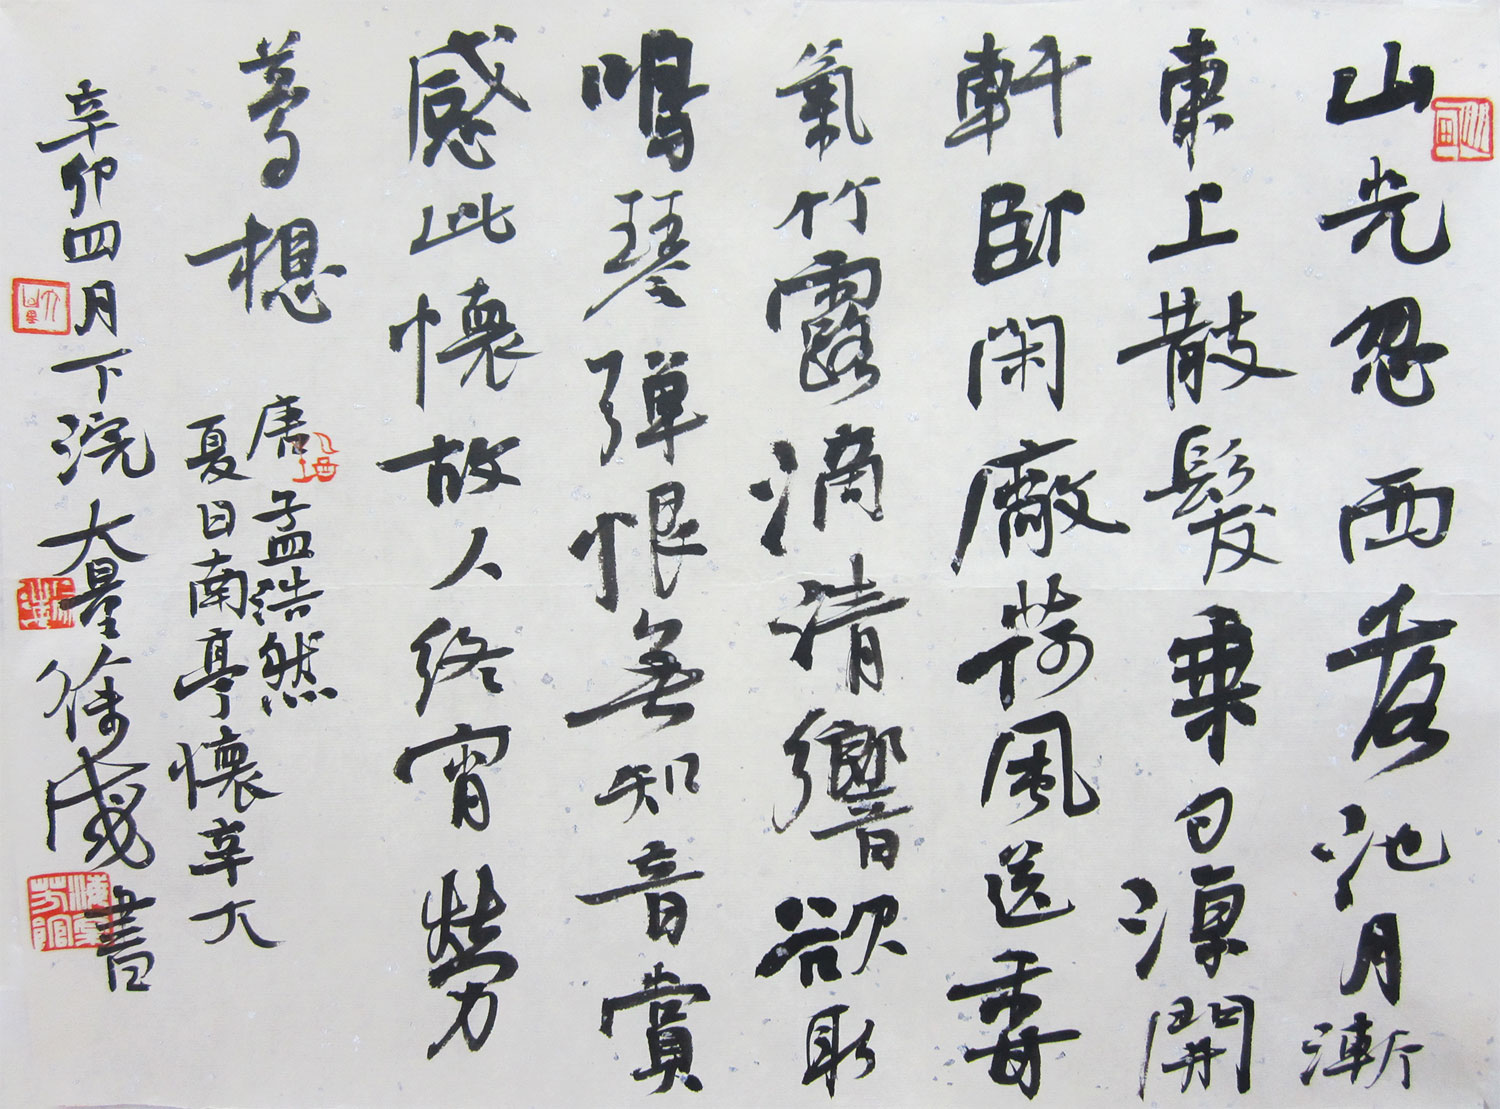 山光忽西落池月漸
東上散髮乘夕涼開
軒臥閑廠荷風送香
氣竹露滴清響欲取
鳴琴彈恨無知音賞
感此懷故人終宵勞
夢想
唐孟浩然
夏日南亭懷辛大
辛卯四月下浣大徐書